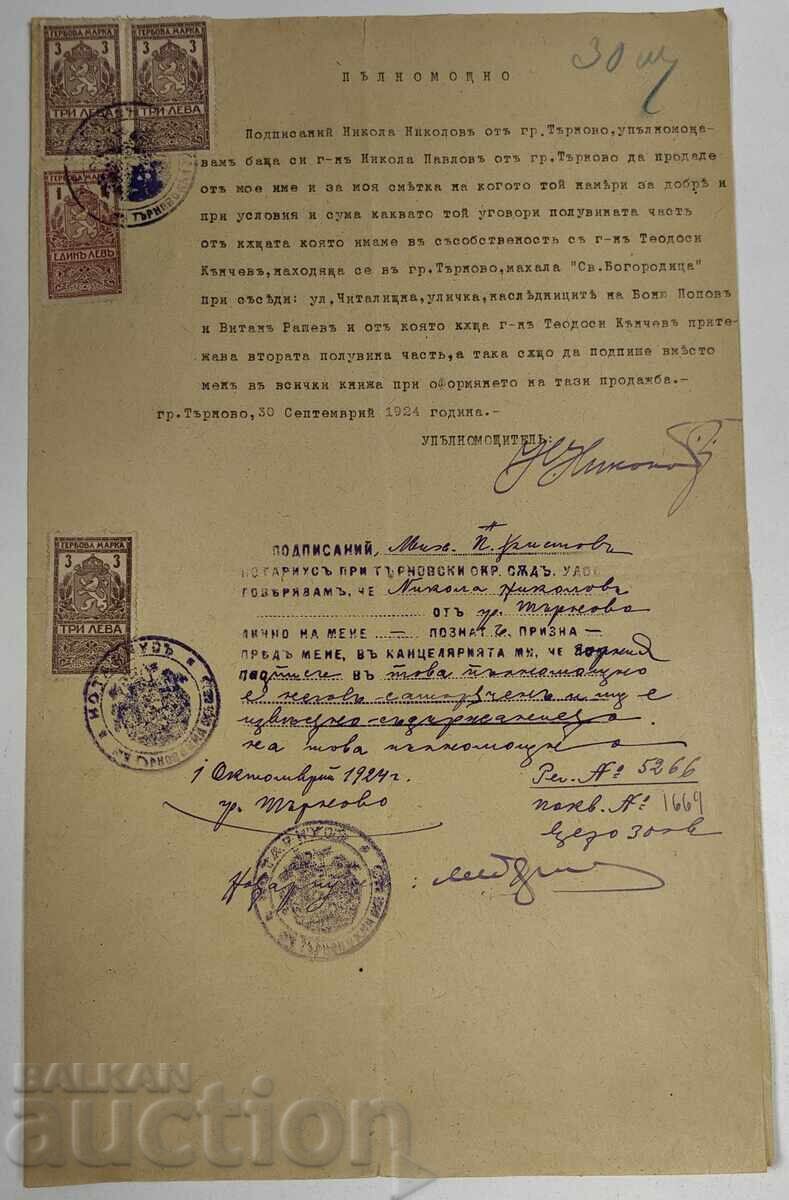 ГЕРБОВА МАРКА
3 3
ТРИ ЛЕВА
ГЕРБОВА МАРКА
3 3
ТРИ ЛЕВА
ГЕРБОВА МАРКА
1
ЕДИНЪ ЛЕВЪ
30
ПЪЛНОМОЩНО
Подписаний Никола Николовъ отъ гр.Търново,упълномоща-
вамъ баща си г-нъ Никола Павловъ отъ гр.Търново да продаде
отъ мое име и за моя смѣтка на когото той намѣри за добрѣ и
при условия и сума каквато той уговори полувината часть
отъ кѫщата която имаме въ съсобственость съ г-нъ Теодоси
Кънчевъ,находяща се въ гр.Търново,махала "Св.Богородица"
при съседи: ул,Читалищна,уличка,наследницитѣ на Боню Поповъ
и Витанъ Рашевъ и отъ която кѫща г-нъ Теодоси Кънчевъ прите-
жава втората полувина часть,а така сѫщо да подпише вмѣсто
менъ въ всички книжа при оформянето на тази продажба.-
гр.Търново,30 Септемврий 1924 година.-
УПЪЛНОМОЩИТЕЛЬ:
Н Николовъ
ГЕРБОВА МАРКА
3 3
ТРИ ЛЕВА
ПОДПИСАНИЙ, Мих. П. Христовъ
НОТАРИУСЪ ПРИ ТЪРНОВСКИ ОКР. СѪДЪ, УДОС
ТОВѢРЯВАМЪ, ЧЕ Никола Николовъ
ОТЪ гр. Търново
ЛИЧНО НА МЕНЕ — ПОЗНАТЪ, ПРИЗНА —
ПРЕДЪ МЕНЕ, ВЪ КАНЦЕЛЯРИЯТА МИ, ЧЕ горния
подписъ ВЪ това пълномощно
е неговъ саморѫченъ и му е
известно съдържанието
на това пълномощно
1 Октомврий 1924 г.
гр. Търново
Рег. № 5266
покв. № 1669
НОТАРИУСЪ
Нотариусъ:
BALKAN
auction